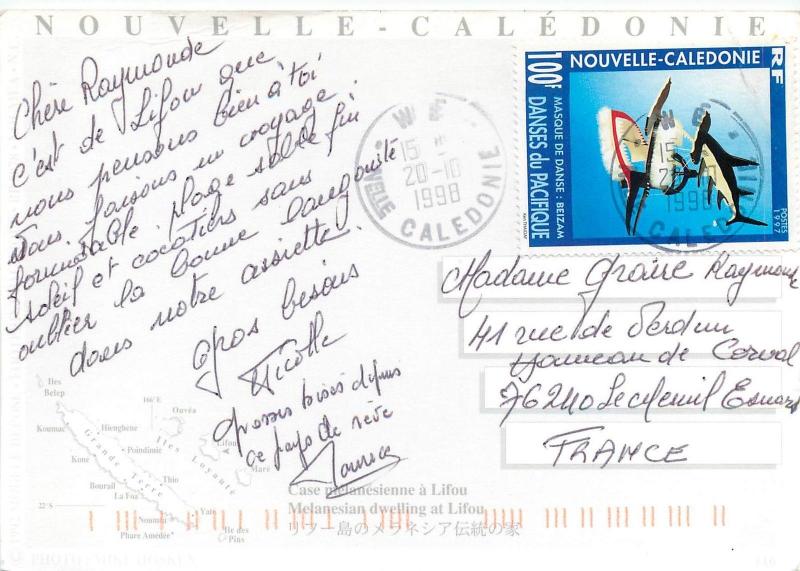 NOUVELLE-CALÉDONIE
Chère Raymonde
c'est de Lifou que
nous pensons bien à toi
Nous faisons un voyage
formidable plage sable fin
soleil et cocotiers sans
oublier la bonne langouste
dans notre assiette.
Gros bisous
Nicolle
Grosses bises depuis
ce pays de rêve
Maurice
WÉ
15
20-10
1998
NOUVELLE CALEDONIE
NOUVELLE-CALEDONIE RF
100F
MASQUE DE DANSE : BEIZAM
DANSES du PACIFIQUE
POSTES 1997
WÉ
15
1998
CALEDONIE
Madame Graire Raymonde
41 rue de Verdun
Hameau de
76240 Le Mesnil Esnard
FRANCE
Iles Belep
166°E
Ouvéa
Koumac
Hienghene
Poindimié
Lifou
Iles Loyauté
Koné
Grande Terre
Maré
Bourail
Thio
La Foa
22°S
Yaté
Nouméa
Phare Amédée
Ile des Pins
Case mélanésienne à Lifou
Melanesian dwelling at Lifou
リフー島のメラネシア伝統の家
PHOTO: MIKE HOSKEN